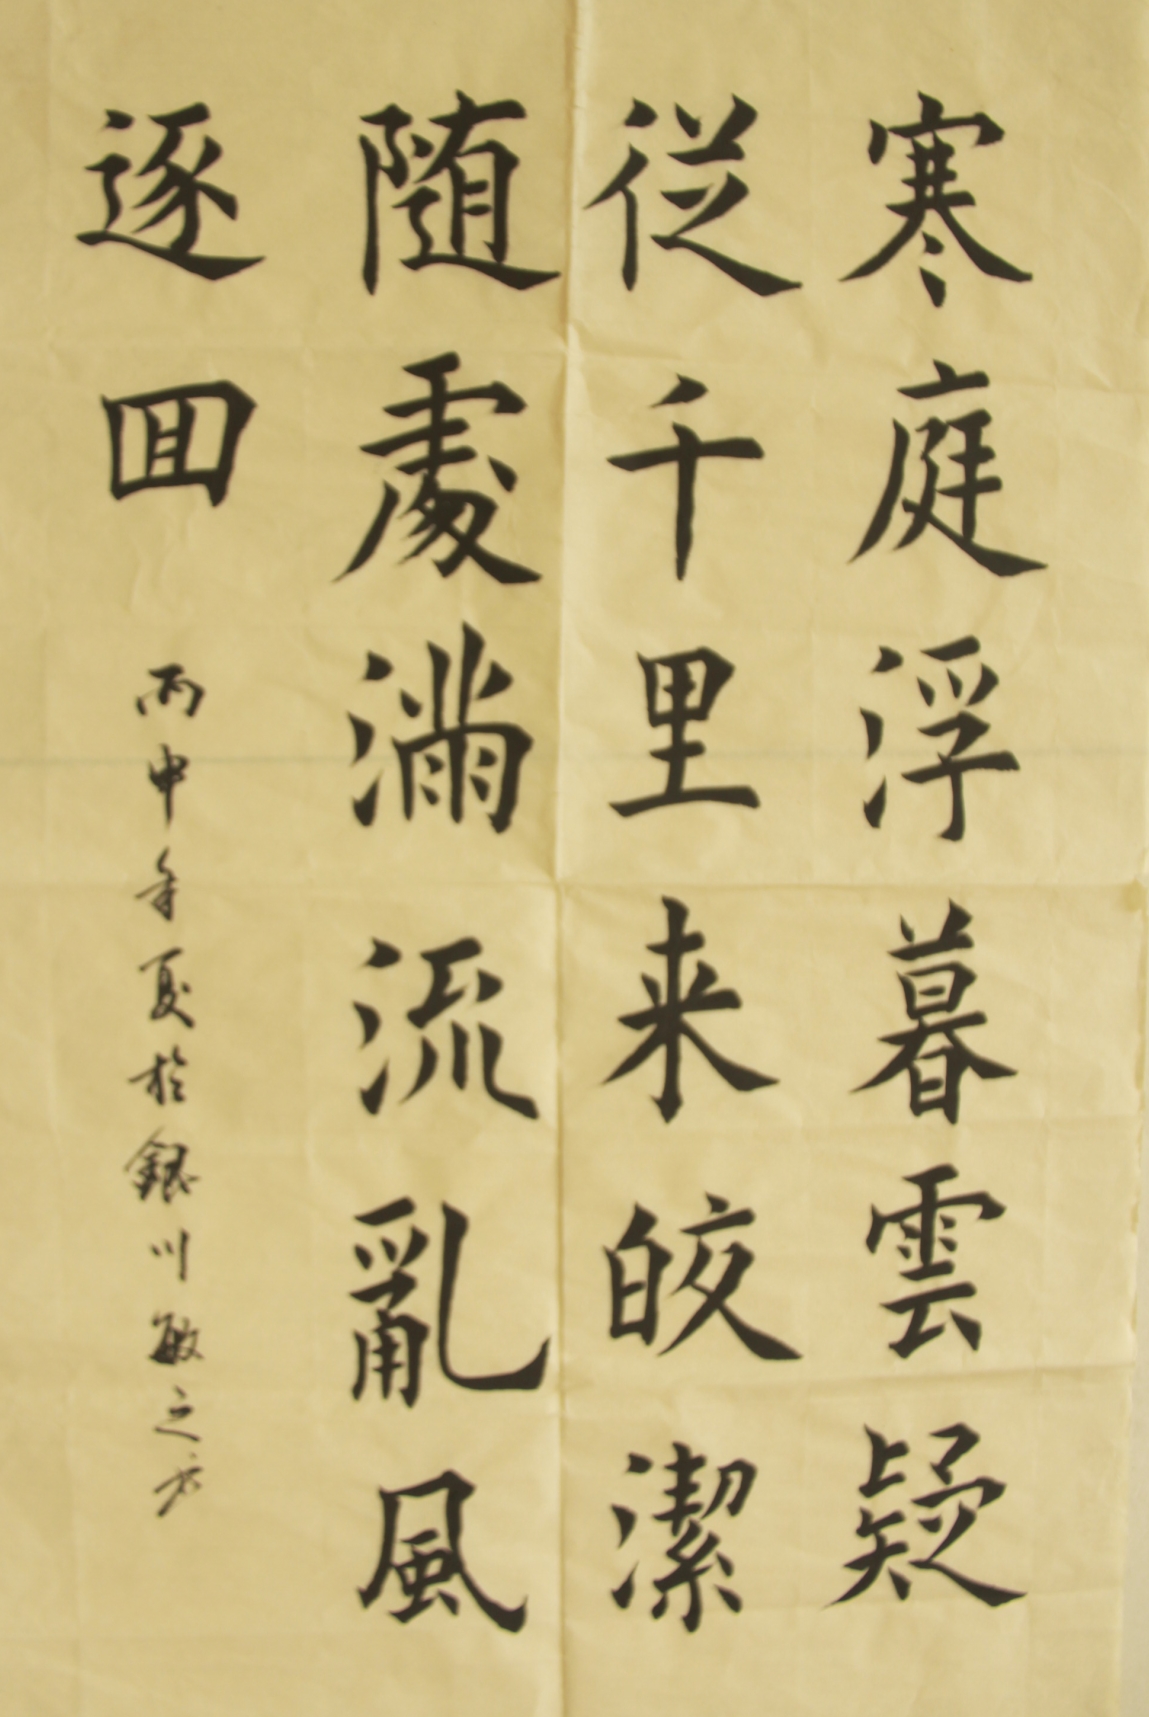 寒庭浮暮雲疑
從千里来皎潔
随處滿流亂風
逐回
丙申年夏於銀川敏之書